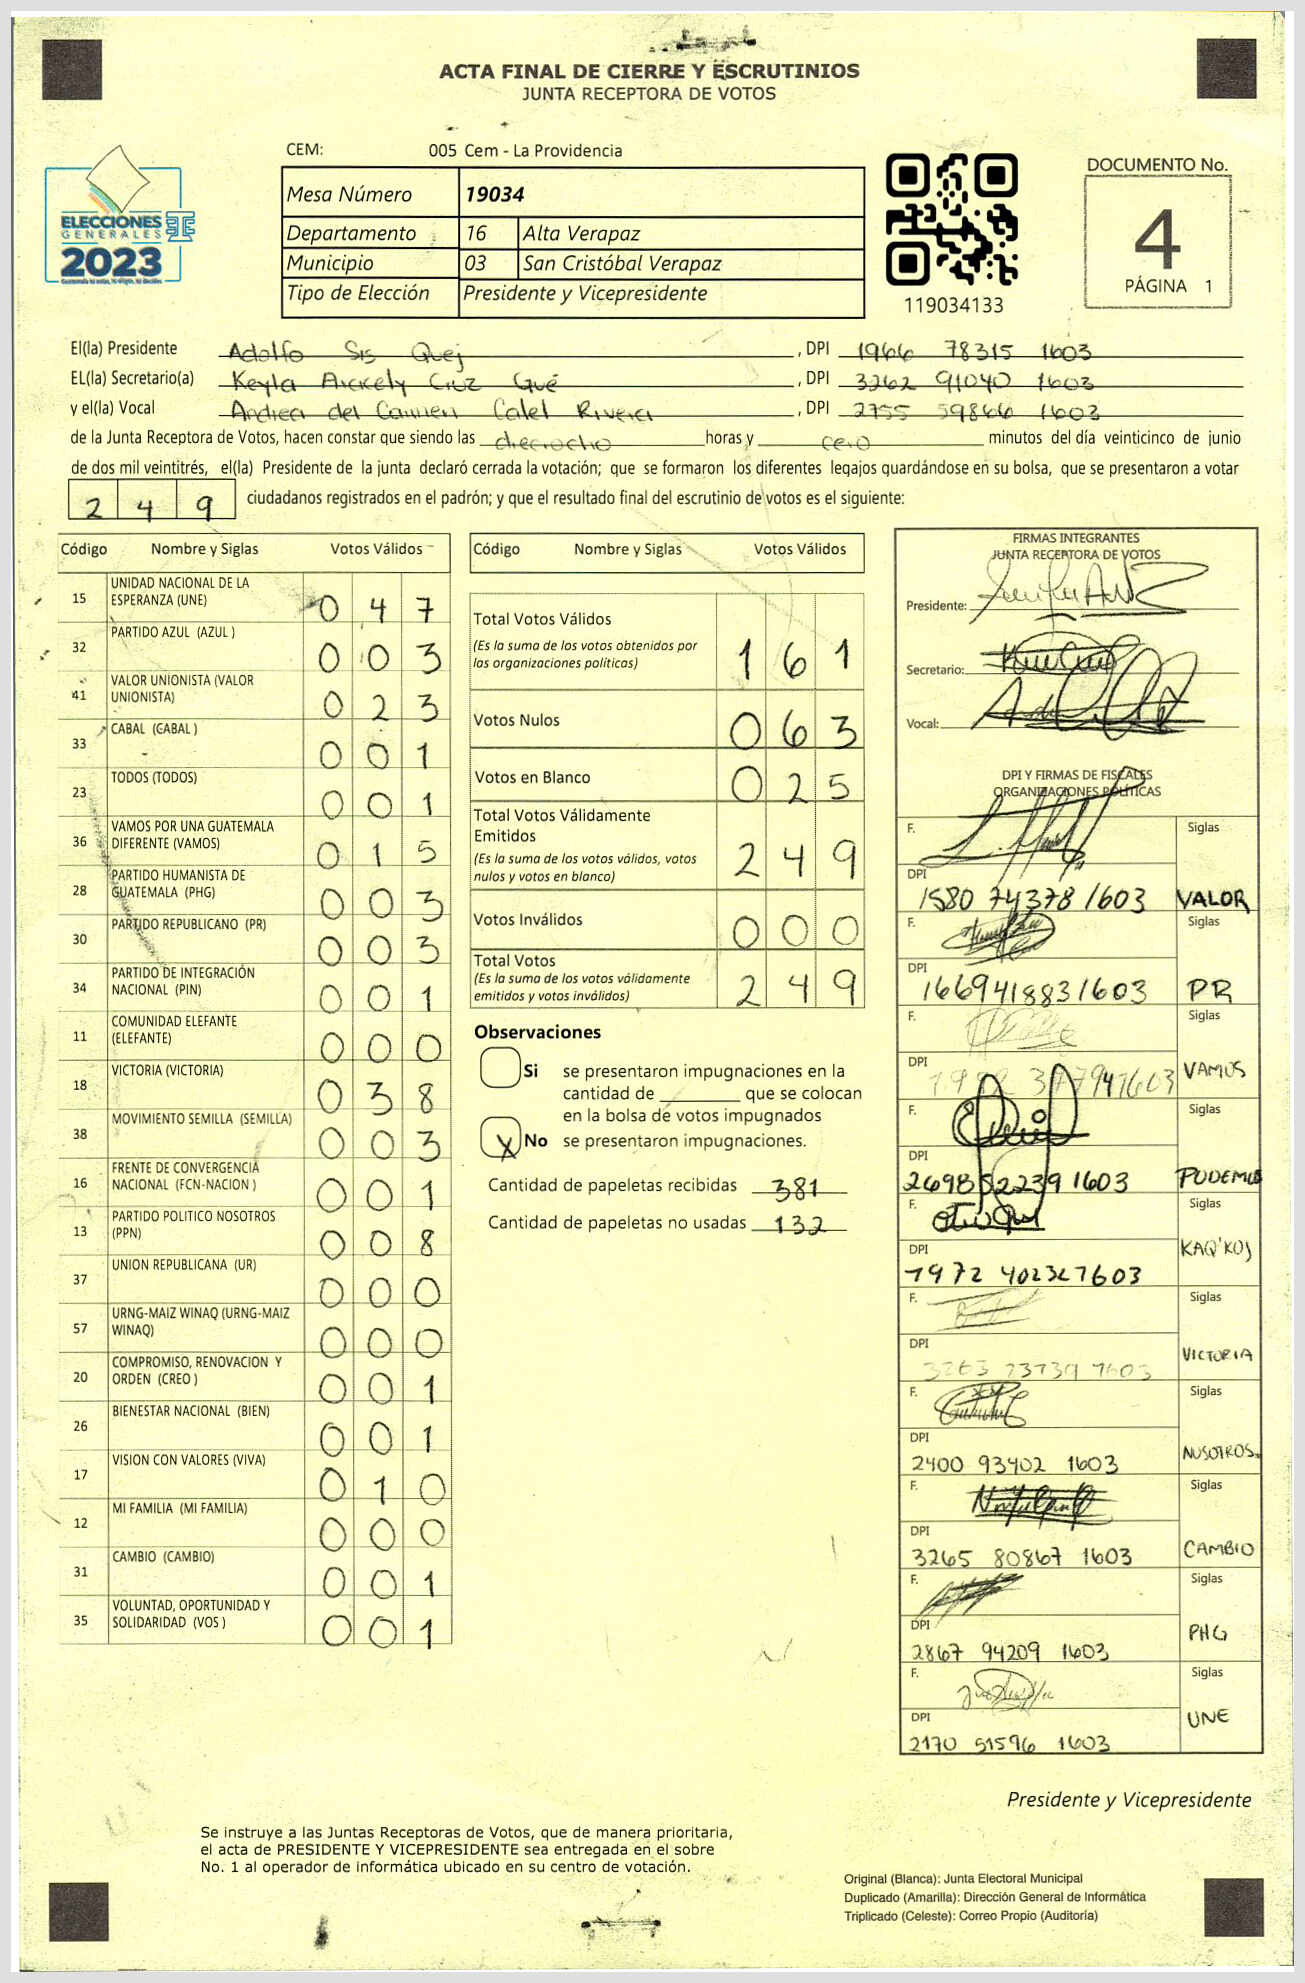 ACTA FINAL DE CIERRE Y ESCRUTINIOS
JUNTA RECEPTORA DE VOTOS
CEM: 005 Cem - La Providencia
ELECCIONES
GENERALES
2023
Mesa Número 19034
Departamento 16 Alta Verapaz
Municipio 03 San Cristóbal Verapaz
Tipo de Elección Presidente y Vicepresidente
119034133
DOCUMENTO No.
4
PÁGINA 1
El(la) Presidente Adolfo Sis Quej, DPI 1966 78315 1603
EL(la) Secretario(a) Keyla Aracely Cruz Gué, DPI 3262 91040 1603
y el(la) Vocal Andrea del Carmen Calel Rivera, DPI 2755 59866 1603
de la Junta Receptora de Votos, hacen constar que siendo las dieciocho horas y cero minutos del día veinticinco de junio
de dos mil veintitrés, el(la) Presidente de la junta declaró cerrada la votación; que se formaron los diferentes legajos guardándose en su bolsa, que se presentaron a votar
249 ciudadanos registrados en el padrón; y que el resultado final del escrutinio de votos es el siguiente:
Código Nombre y Siglas Votos Válidos
15 UNIDAD NACIONAL DE LA ESPERANZA (UNE) 0 4 7
32 PARTIDO AZUL (AZUL ) 0 0 3
41 VALOR UNIONISTA (VALOR UNIONISTA) 0 2 3
33 CABAL (CABAL ) 0 0 1
23 TODOS (TODOS) 0 0 1
36 VAMOS POR UNA GUATEMALA DIFERENTE (VAMOS) 0 1 5
28 PARTIDO HUMANISTA DE GUATEMALA (PHG) 0 0 3
30 PARTIDO REPUBLICANO (PR) 0 0 3
34 PARTIDO DE INTEGRACIÓN NACIONAL (PIN) 0 0 1
11 COMUNIDAD ELEFANTE (ELEFANTE) 0 0 0
18 VICTORIA (VICTORIA) 0 3 8
38 MOVIMIENTO SEMILLA (SEMILLA) 0 0 3
16 FRENTE DE CONVERGENCIA NACIONAL (FCN-NACION ) 0 0 1
13 PARTIDO POLITICO NOSOTROS (PPN) 0 0 8
37 UNION REPUBLICANA (UR) 0 0 0
57 URNG-MAIZ WINAQ (URNG-MAIZ WINAQ) 0 0 0
20 COMPROMISO, RENOVACION Y ORDEN (CREO ) 0 0 1
26 BIENESTAR NACIONAL (BIEN) 0 0 1
17 VISION CON VALORES (VIVA) 0 1 0
12 MI FAMILIA (MI FAMILIA) 0 0 0
31 CAMBIO (CAMBIO) 0 0 1
35 VOLUNTAD, OPORTUNIDAD Y SOLIDARIDAD (VOS ) 0 0 1
Código Nombre y Siglas Votos Válidos
Total Votos Válidos 1 6 1
(Es la suma de los votos obtenidos por
las organizaciones políticas)
Votos Nulos 0 6 3
Votos en Blanco 0 2 5
Total Votos Válidamente
Emitidos 2 4 9
(Es la suma de los votos válidos, votos
nulos y votos en blanco)
Votos Inválidos 0 0 0
Total Votos 2 4 9
(Es la suma de los votos válidamente
emitidos y votos inválidos)
Observaciones
Si se presentaron impugnaciones en la
cantidad de ________ que se colocan
en la bolsa de votos impugnados
X No se presentaron impugnaciones.
Cantidad de papeletas recibidas 381
Cantidad de papeletas no usadas 132
FIRMAS INTEGRANTES
JUNTA RECEPTORA DE VOTOS
Presidente:
Secretario:
Vocal:
DPI Y FIRMAS DE FISCALES
ORGANIZACIONES POLÍTICAS
F. Siglas
DPI 1580 74378 1603 VALOR
F. Siglas
DPI 1669418831603 PR
F. Siglas
DPI VAMOS
F. Siglas
DPI 2698522391603 PODEMOS
F. Siglas
DPI 1972 402327603 KAQ'KOJ
F. Siglas
DPI 3263 23739 1603 VICTORIA
F. Siglas
DPI 2400 93402 1603 NOSOTROS
F. Siglas
DPI 3265 80867 1603 CAMBIO
F. Siglas
DPI 2867 94209 1603 PHG
F. Siglas
DPI 2170 51596 1603 UNE
Presidente y Vicepresidente
Se instruye a las Juntas Receptoras de Votos, que de manera prioritaria,
el acta de PRESIDENTE Y VICEPRESIDENTE sea entregada en el sobre
No. 1 al operador de informática ubicado en su centro de votación.
Original (Blanca): Junta Electoral Municipal
Duplicado (Amarilla): Dirección General de Informática
Triplicado (Celeste): Correo Propio (Auditoría)